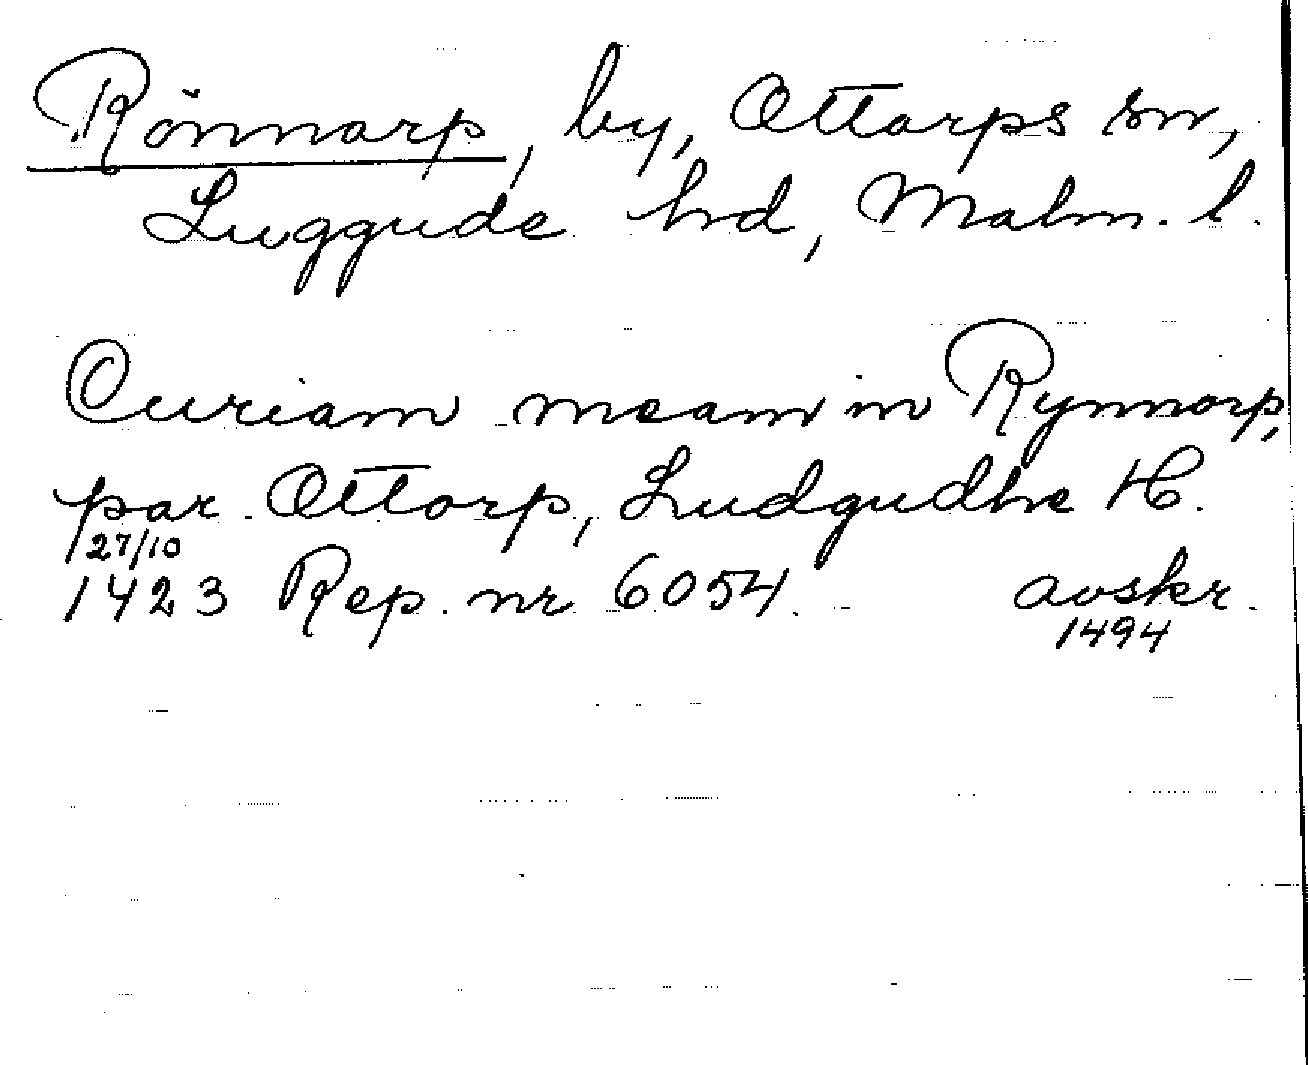 Rönnarp, by, Ottarps sn,
Luggude hd, Malm. l.
Curiam meam in Rynnorp,
par Ottorp, Ludgudhe H.
27/10
1423 Rep. nr 6054. avskr.
1494